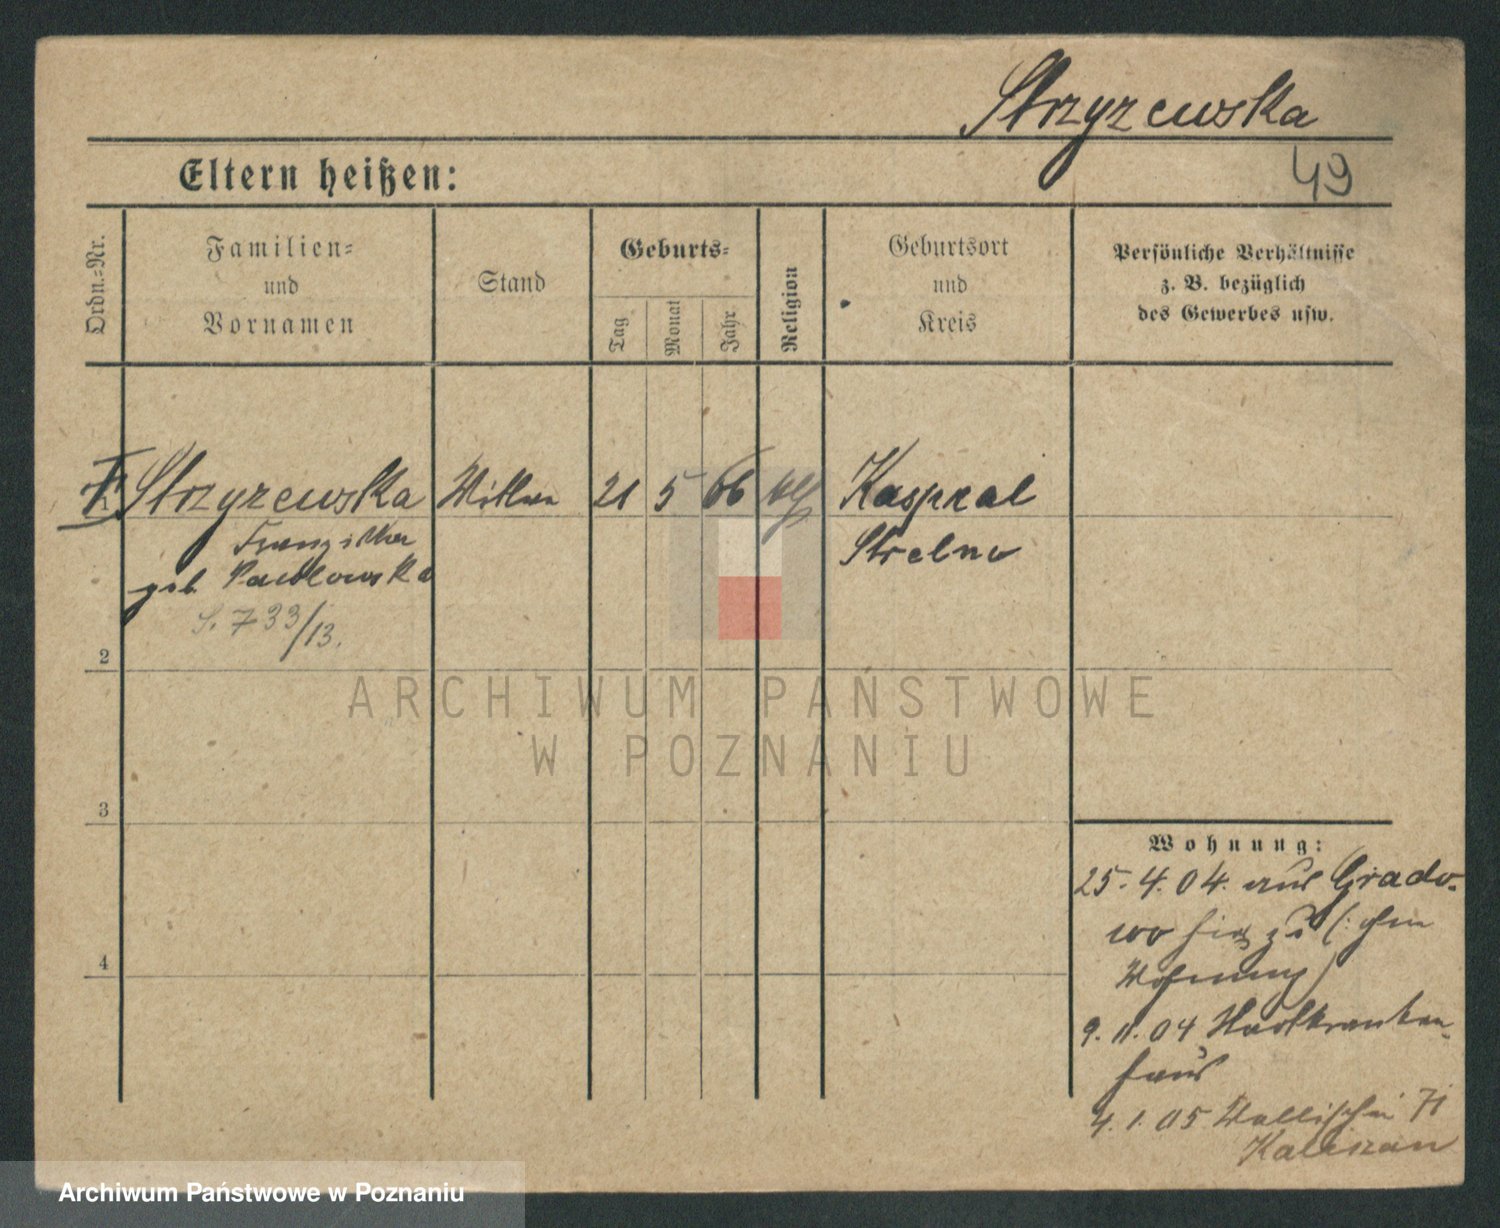 Strzyzewska
49
Eltern heißen:
Ordn.-Nr.
Familien-
und
Vornamen
Stand
Geburts-
Tag
Monat
Jahr
Religion
Geburtsort
und
Kreis
Persönliche Verhältnisse
z. B. bezüglich
des Gewerbes usw.
Strzyzewska Witwe 21 5 66 Kaspral
Franziska Strelno
geb. Pawlowska
S. 733/13.
2
3
4
ARCHIWUM PAŃSTWOWE
W POZNANIU
Wohnung:
25.4.04. aus Grado-
wo hier zu (: ohne
Wohnung)
9.11.04 Stadtkranken-
haus
4.1.05 Wallischei 71
Archiwum Państwowe w Poznaniu